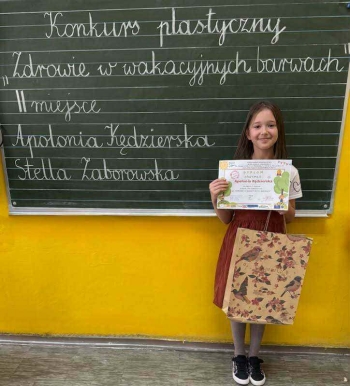 Konkurs plastyczny
"Zdrowie w wakacyjnych barwach"
II miejsce
Apolonia Kędzierska
Stella Zaborowska
DYPLOM